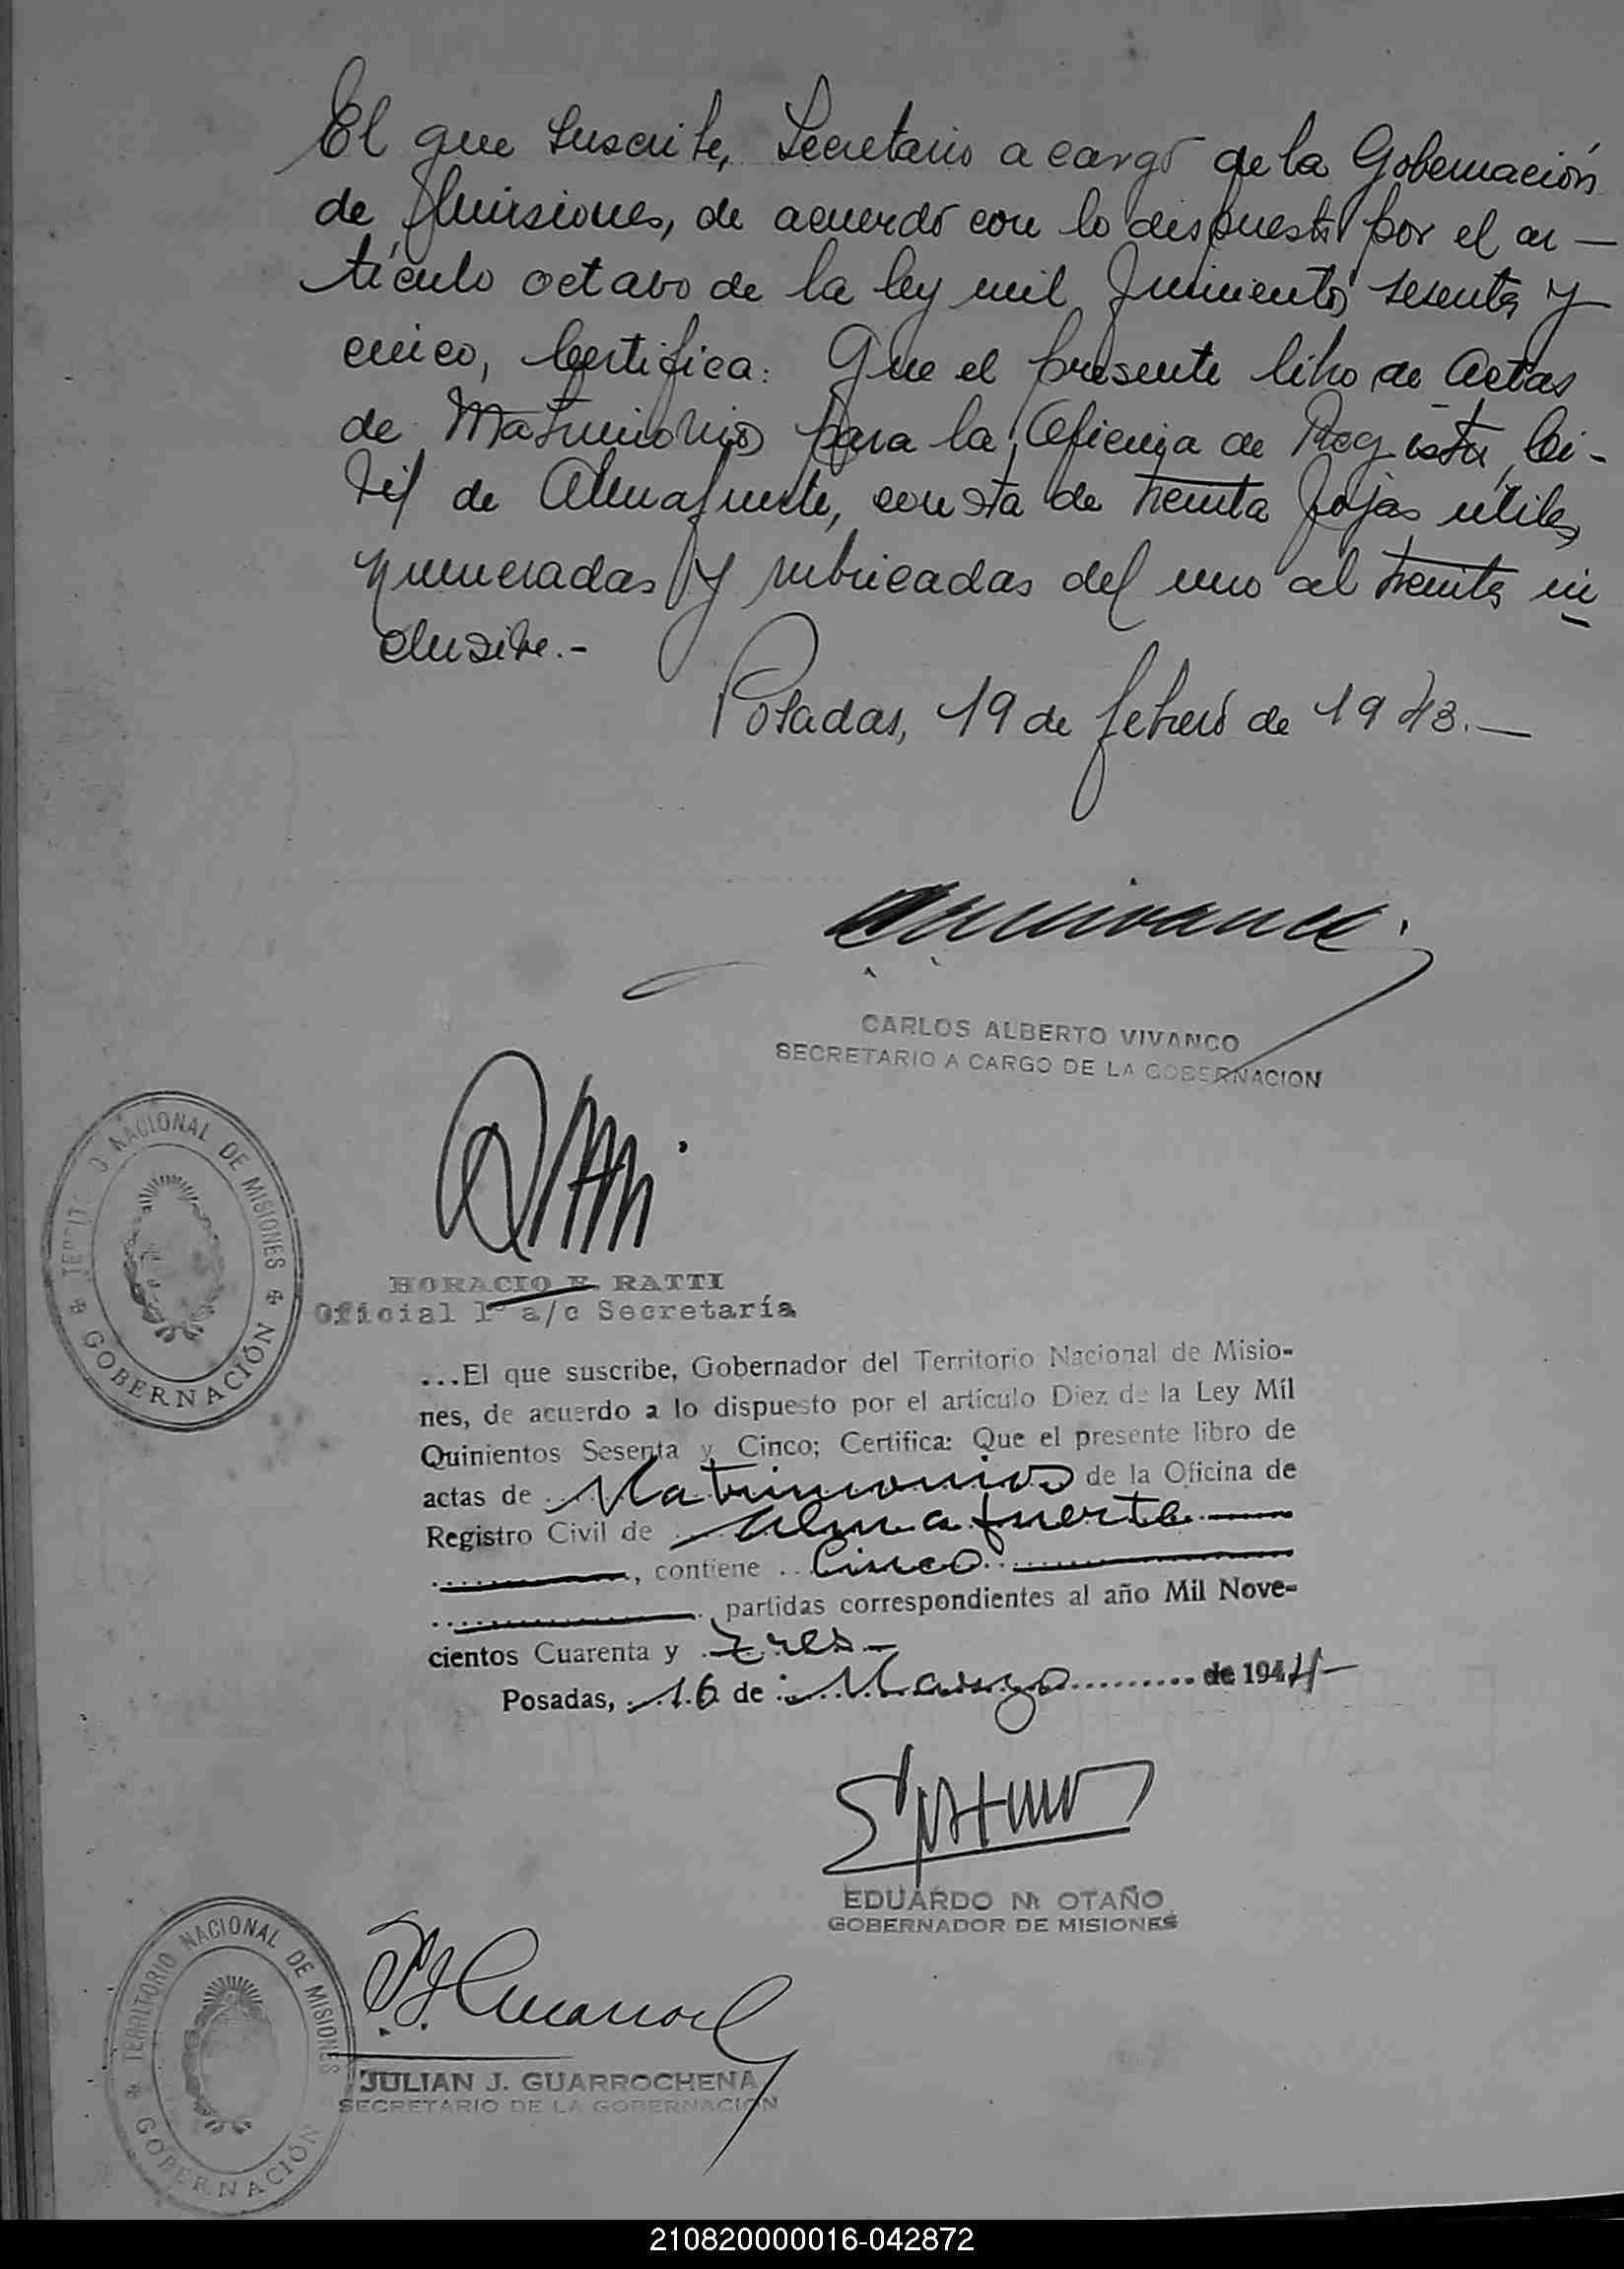 El que suscribe, Secretario a cargo de la Gobernación
de Misiones, de acuerdo con lo dispuesto por el ar—
tículo octavo de la ley mil quinientos sesenta y
cinco, Certifica: Que el presente libro de Actas
de Matrimonios para la Oficina de Registro Ci-
vil de Almafuerte, consta de treinta fojas utiles,
numeradas y rubricadas del uno al treinta in
clusive.-
Posadas, 19 de febrero de 1943.—
CARLOS ALBERTO VIVANCO
SECRETARIO A CARGO DE LA GOBERNACION
TERRITORIO NACIONAL DE MISIONES
GOBERNACIÓN
HORACIO E. RATTI
Oficial 1º a/c Secretaría
...El que suscribe, Gobernador del Territorio Nacional de Misio-
nes, de acuerdo a lo dispuesto por el artículo Diez de la Ley Mil
Quinientos Sesenta y Cinco; Certifica: Que el presente libro de
actas de Matrimonios de la Oficina de
Registro Civil de Almafuerte
, contiene Cinco
partidas correspondientes al año Mil Nove-
cientos Cuarenta y tres-
Posadas, 16 de Marzo de 1944-
EDUARDO M. OTAÑO
GOBERNADOR DE MISIONES
TERRITORIO NACIONAL DE MISIONES
GOBERNACIÓN
JULIAN J. GUARROCHENA
SECRETARIO DE LA GOBERNACION
210820000016-042872